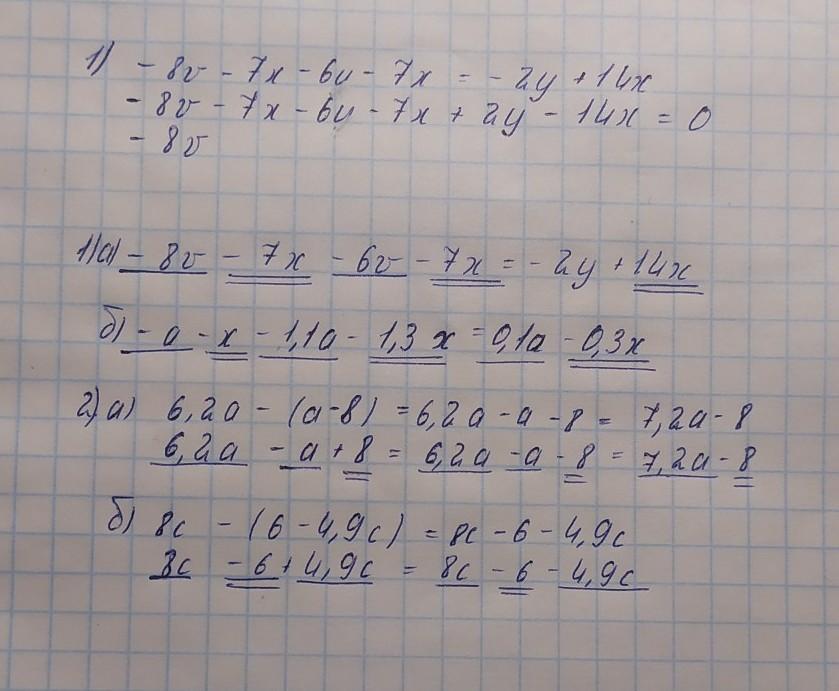 1) - 8v - 7x - 6v - 7x = - 2y + 14x
- 8v - 7x - 6v - 7x + 2y - 14x = 0
- 8v
1)а) - 8v - 7x - 6v - 7x = - 2y + 14x
б) - a - x - 1,1a - 1,3 x = 0,1a - 0,3x
2) а) 6,2a - (a - 8) = 6,2a - a - 8 = 7,2a - 8
6,2a - a + 8 = 6,2a - a - 8 = 7,2a - 8
б) 8c - (6 - 4,9c) = 8c - 6 - 4,9c
8c - 6 + 4,9c = 8c - 6 - 4,9c